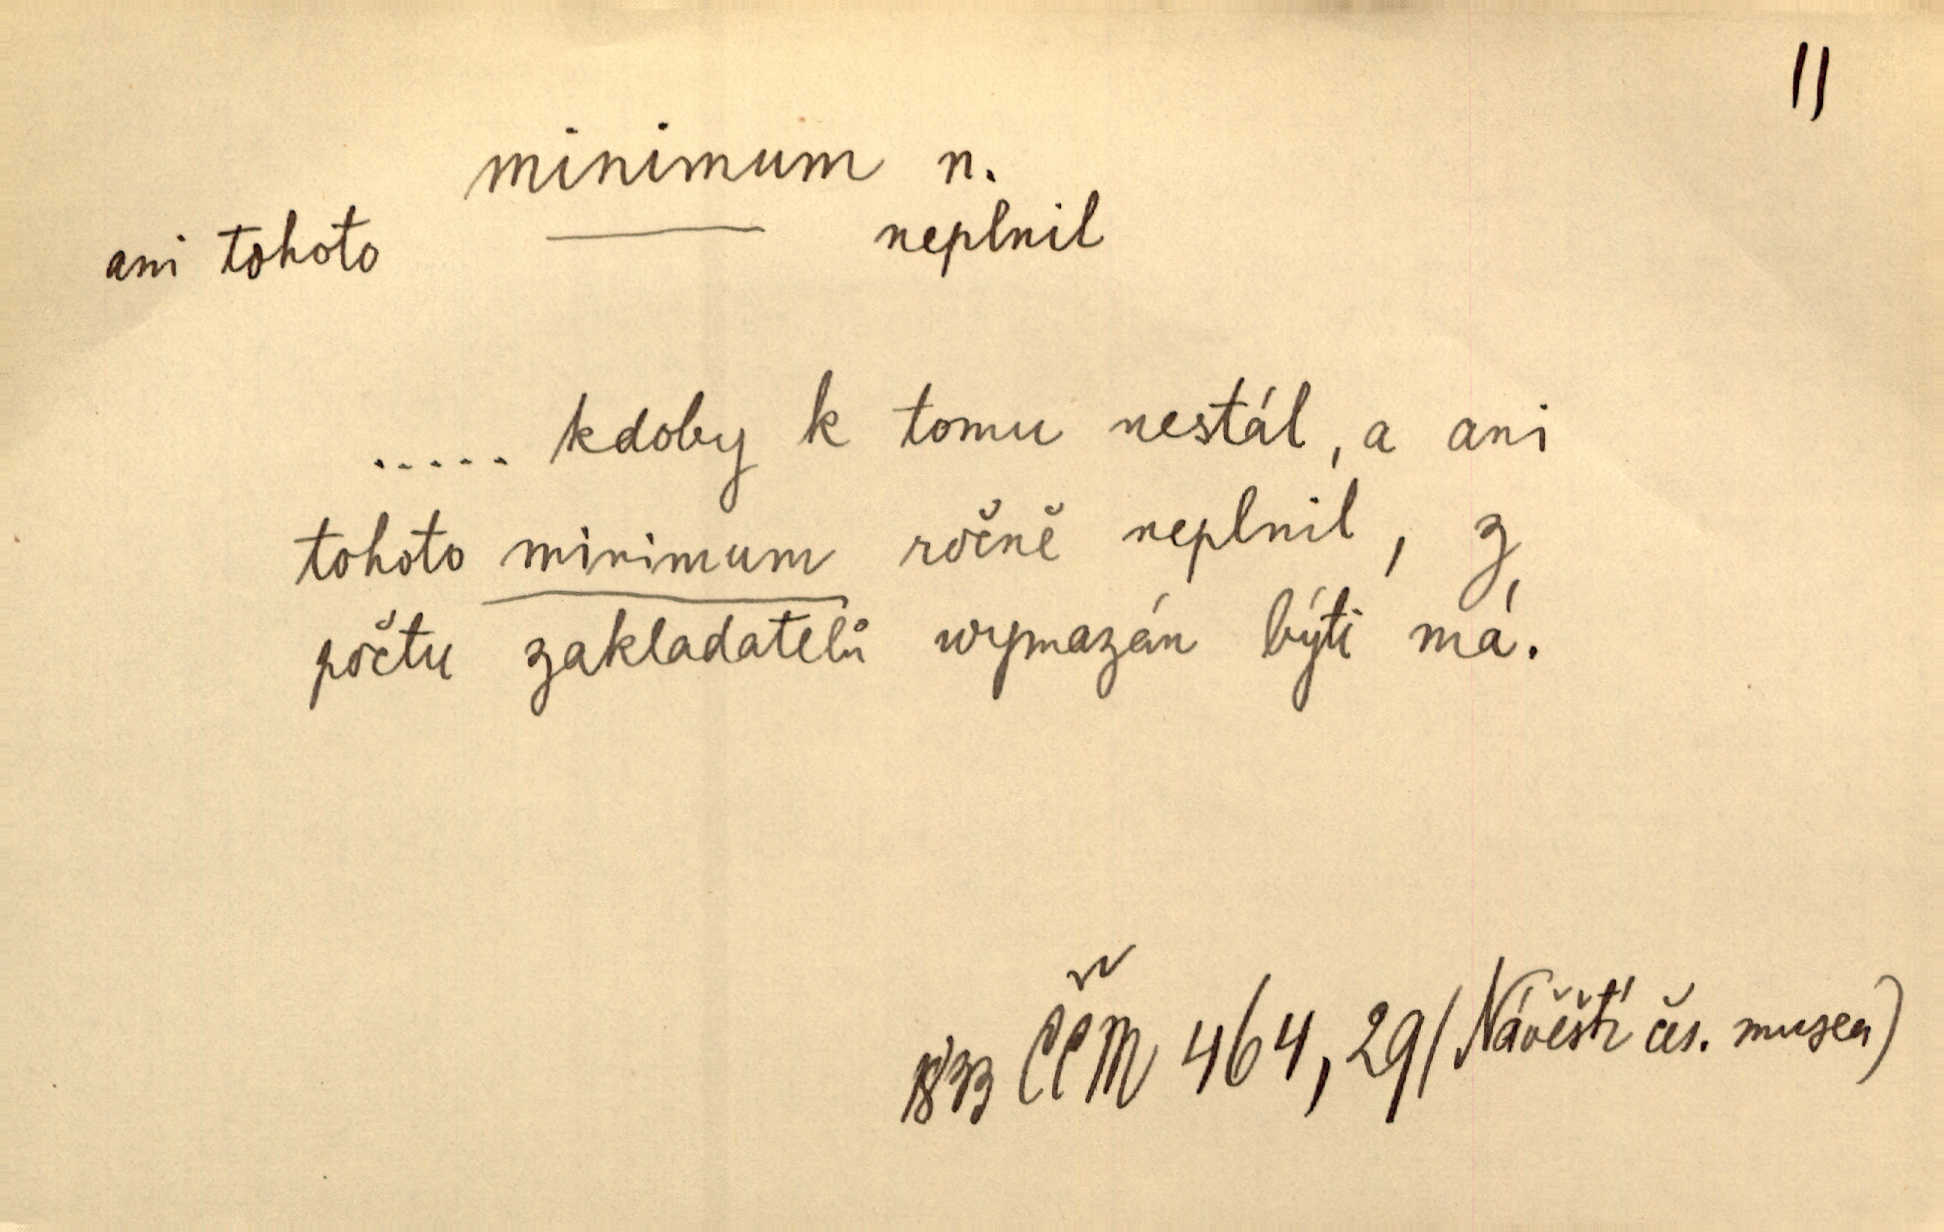 11
minimum n.
ani tohoto ——— neplnil
..... kdoby k tomu nestál, a ani
tohoto minimum ročně neplnil, z
počtu zakladatelů wymazán býti má.
1833 ČČM 464, 29 (Návěští čes. musea)